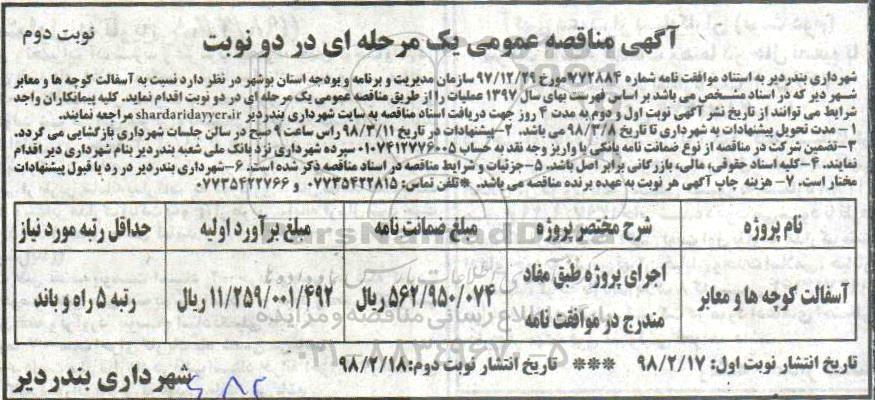 آگهی مناقصه عمومی یک مرحله ای در دو نوبت
نوبت دوم
شهرداری بندردیر به استناد موافقت نامه شماره ۷۷۲۸۸۴مورخ ۹۷/۱۲/۲۹ سازمان مدیریت و برنامه و بودجه استان بوشهر در نظر دارد نسبت به آسفالت کوچه ها و معابر
شهر دیر که در اسناد مشخص می باشد بر اساس فهرست بهای سال ۱۳۹۷ عملیات را از طریق مناقصه عمومی یک مرحله ای در دو نوبت اقدام نماید. کلیه پیمانکاران واجد
شرایط می توانند از تاریخ نشر آگهی نوبت اول و دوم به مدت ۴ روز جهت دریافت اسناد مناقصه به سایت شهرداری بندردیر shardaridayyer.ir مراجعه نمایند.
۱- مدت تحویل پیشنهادات به شهرداری تا تاریخ ۹۸/۳/۸ می باشد. ۲-پیشنهادات در تاریخ ۹۸/۳/۱۱ راس ساعت ۹ صبح در سالن جلسات شهرداری بازگشایی می گردد.
۳-تضمین شرکت در مناقصه از نوع ضمانت نامه بانکی یا واریز وجه نقد به حساب ۰۱۰۷۴۱۲۷۷۶۰۰۵ سپرده شهرداری نزد بانک ملی شعبه بندردیر بنام شهرداری دیر اقدام
نمایند. ۴-کلیه اسناد حقوقی، مالی، بازرگانی برابر اصل باشد. ۵-جزئیات و شرایط مناقصه در اسناد مناقصه ذکر شده است. ۶-شهرداری بندردیر در رد یا قبول پیشنهادات
مختار است. ۷- هزینه چاپ آگهی هر نوبت به عهده برنده مناقصه می باشد. *تلفن تماس: ۰۷۷۳۵۴۲۲۸۱۵ و ۰۷۷۳۵۴۲۲۷۶۶
نام پروژه شرح مختصر پروژه مبلغ ضمانت نامه مبلغ برآورد اولیه حداقل رتبه مورد نیاز
آسفالت کوچه ها و معابر اجرای پروژه طبق مفاد مندرج در موافقت نامه ۵۶۲/۹۵۰/۰۷۴ ریال ۱۱/۲۵۹/۰۰۱/۴۹۲ ریال رتبه ۵ راه و باند
تاریخ انتشار نوبت اول: ۹۸/۲/۱۷ *** تاریخ انتشار نوبت دوم: ۹۸/۲/۱۸
شهرداری بندردیر